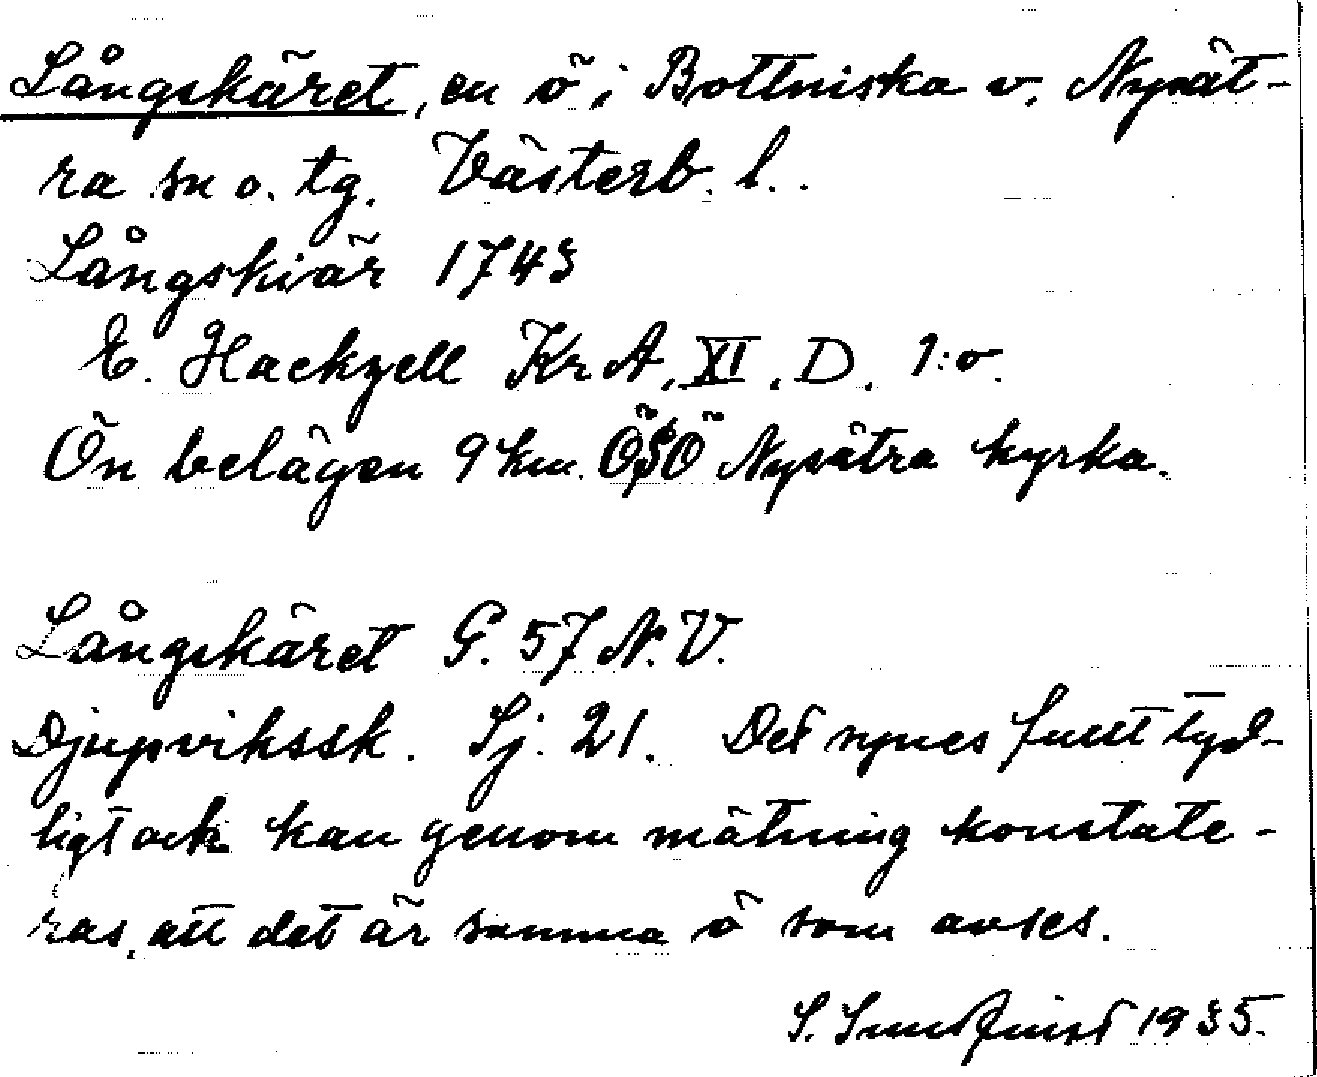 Långskäret, en ö i Bottniska v. Nysät-
ra sn o. tg. Västerb. l.
Långskiär 1743
E. Hackzell KrA, XI. D. 1:o.
Ön belägen 9 km. ÖSÖ Nysätra kyrka.
Långskäret G. 57 N.V.
Djupvikssk. Sj. 21. Det synes fullt tyd-
ligt ock kan genom mätning konstate-
ras, att det är samma ö som avses.
S. Sundquist 1935.